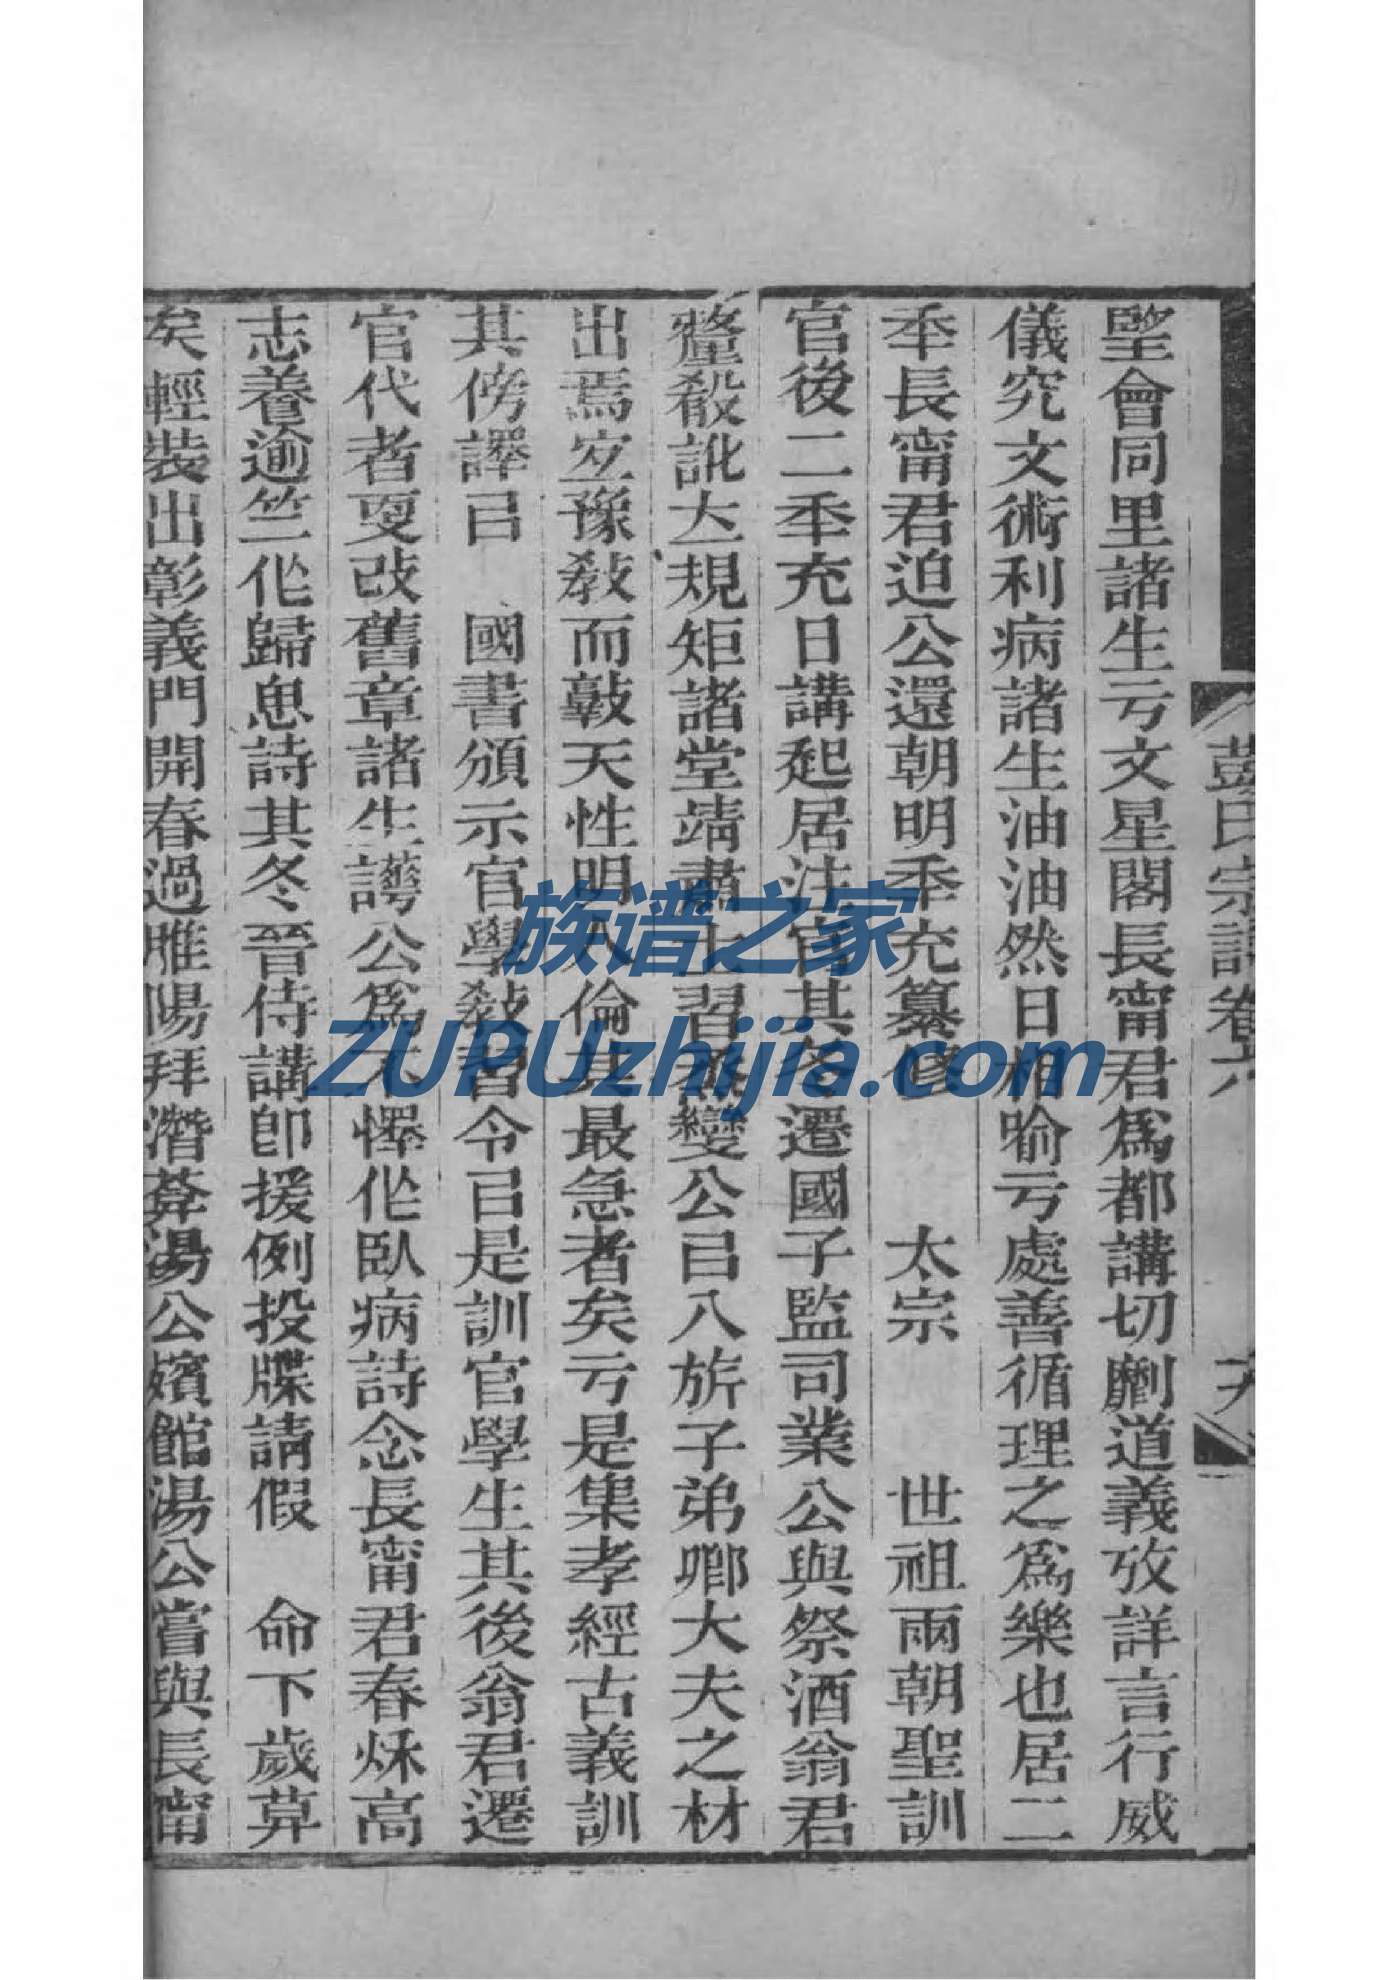 朢會同里諸生亏文星閣長甯君爲都講切劘道義攷詳言行威
儀究文術利病諸生油油然日相喻亏處善循理之爲樂也居二
秊長甯君迫公還朝明秊充纂修 太宗 世祖兩朝聖訓
官後二秊充日講起居注官其冬遷國子監司業公與祭酒翁君
釐殽訛立規矩諸堂靖肅士習丕變公㠯八旂子弟卿大夫之材
出焉宐豫敎而敦天性明人倫其最急者矣亏是集孝經古義訓
其傍譯㠯 國書頒示官學敎習令㠯是訓官學生其後翁君遷
官代者更改舊章諸生譁公爲不懌作臥病詩念長甯君春秌高
志養逾竺作歸思詩其冬晉侍講卽援例投牒請假 命下歲莫
矣輕裝出彰義門開春過雎陽拜潛菴湯公殯館湯公嘗與長甯
彭氏宗譜卷六
族谱之家
ZUPUzhijia.com